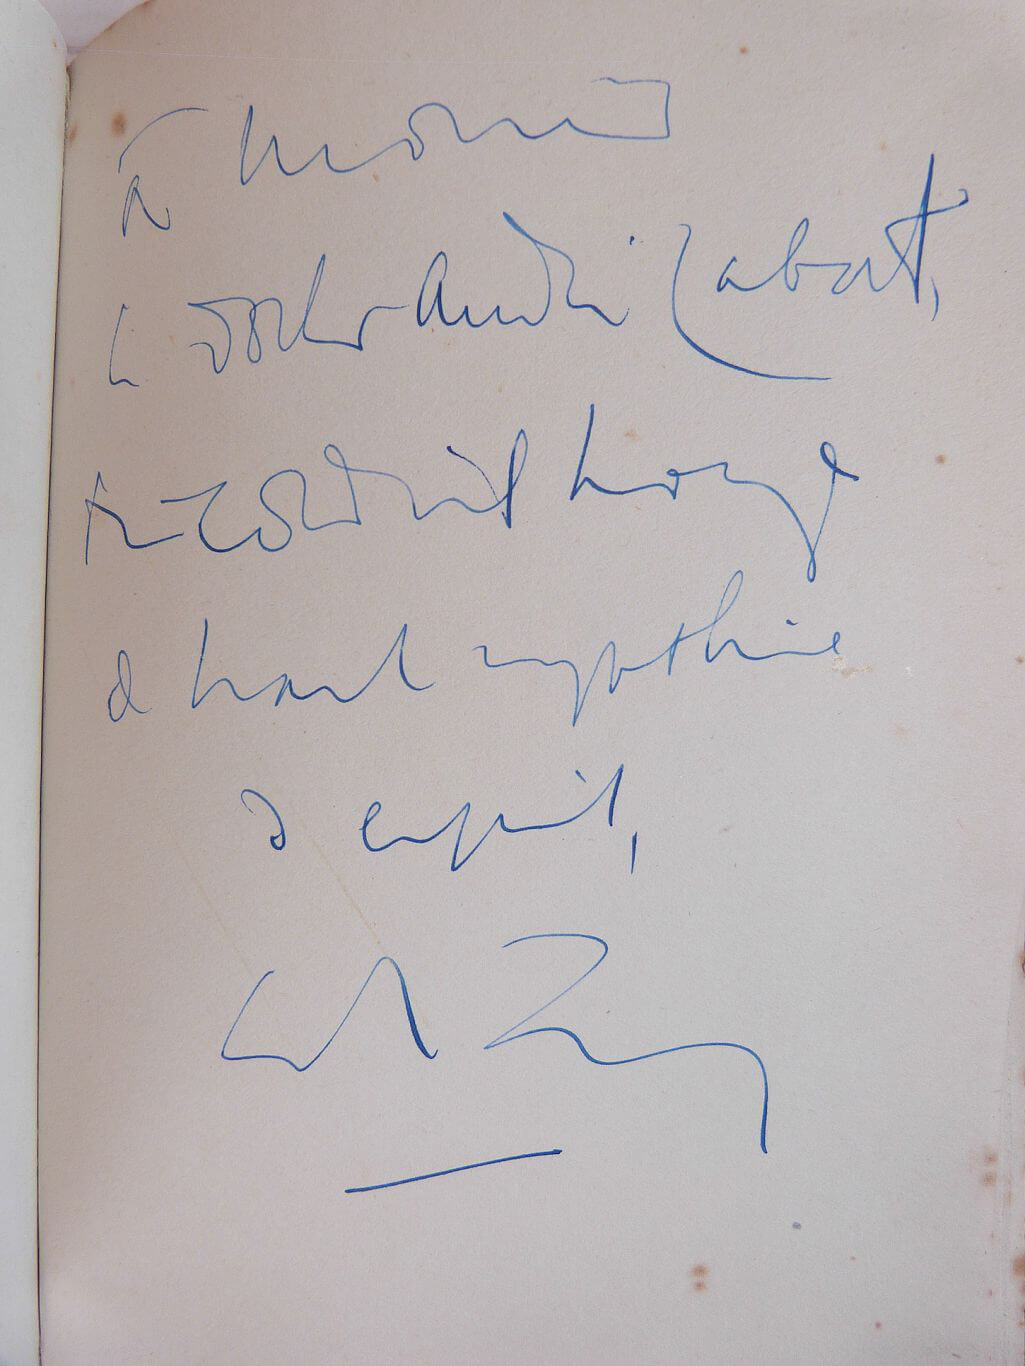 à Monsieur
le docteur André Cabart,
très cordial hommage
de haute sympathie
d'esprit,